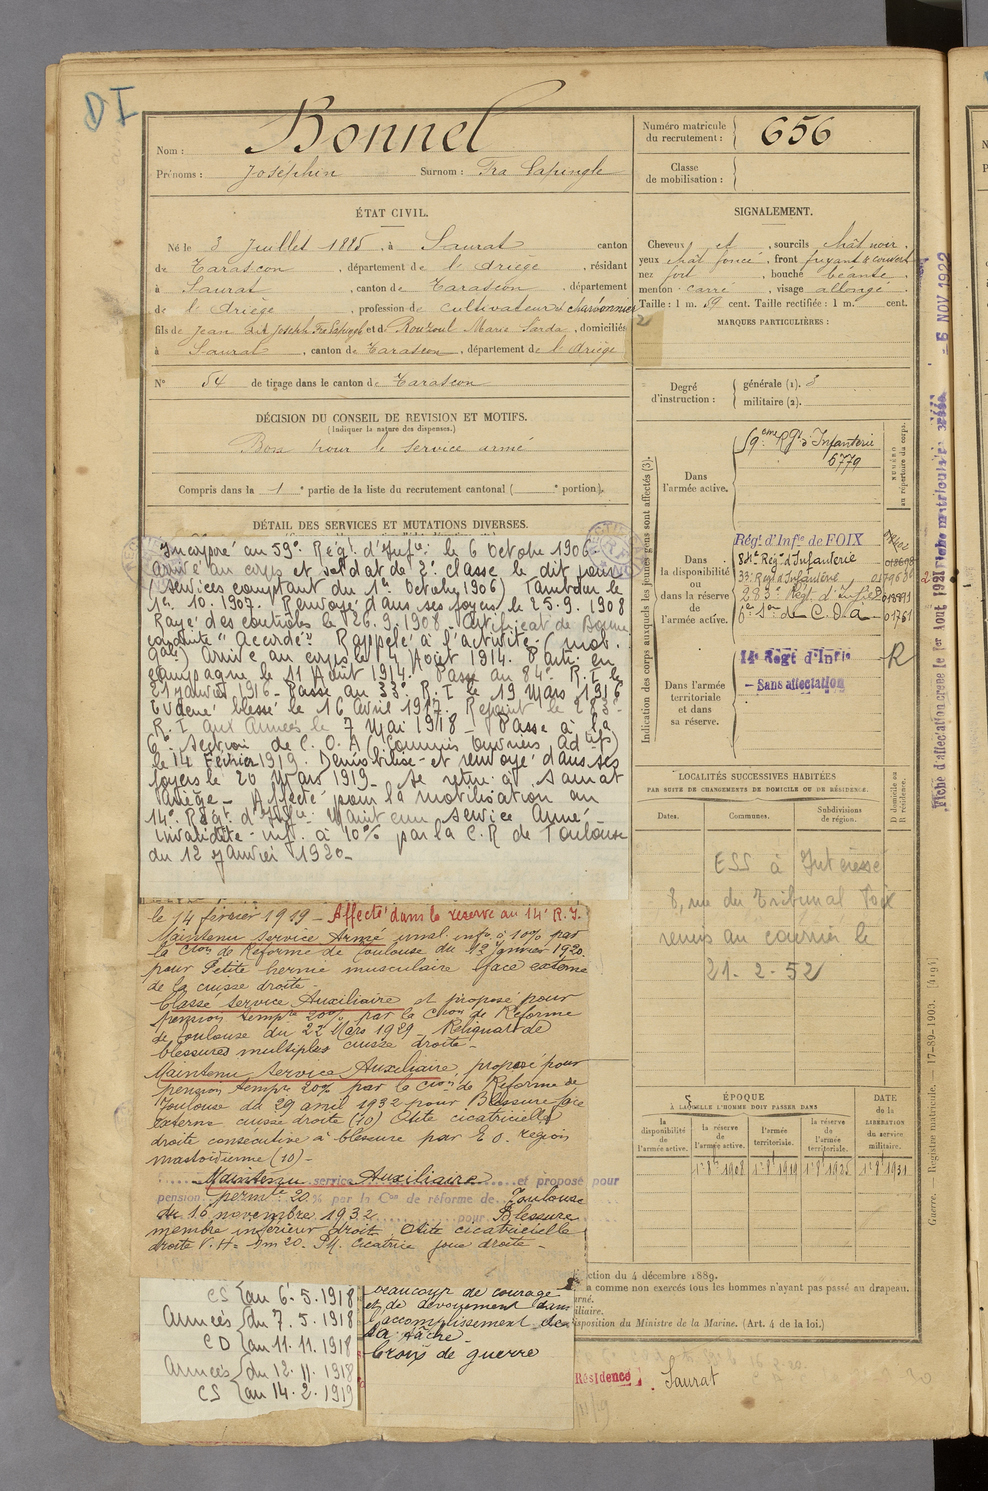 DI
Nom : Bonnel
Prénoms : Joséphin Surnom : Fra Lapingle
Numéro matricule du recrutement : 656
Classe de mobilisation :
ÉTAT CIVIL.
Né le 3 Juillet 1885, à Saurat canton
de Tarascon, département de l'Ariège, résidant
à Saurat, canton de Tarascon, département
de l'Ariège, profession de cultivateur et charbonnier
fils de Jean dit Joseph Fra Lapingle et de Rouzoul Marie Sarda, domiciliés
à Saurat, canton de Tarascon, département de l'Ariège
N° 54 de tirage dans le canton de Tarascon
SIGNALEMENT.
Cheveux et, sourcils chât noir.
yeux chât foncé, front fuyant & couvert
nez fort, bouche béante
menton carré, visage allongé
Taille : 1 m. 59 cent. Taille rectifiée : 1 m. cent.
MARQUES PARTICULIÈRES :
2
Degré d'instruction : générale (1). 3
militaire (2).
DÉCISION DU CONSEIL DE REVISION ET MOTIFS.
(Indiquer la nature des dispenses.)
Bon pour le service armé
Compris dans la 1e partie de la liste du recrutement cantonal ( e portion).
DÉTAIL DES SERVICES ET MUTATIONS DIVERSES.
Incorporé au 59e Régt d'Infie le 6 Octobre 1906.
Arrivé au corps et soldat de 2e classe le dit jour
(services comptant du 1er Octobre 1906) Tambour le
1er 10. 1907. Renvoyé dans ses foyers le 25.9.1908
Rayé des contrôles le 26.9.1908. Certificat de Bonne
conduite "Accordé". Rappelé à l'activité (mob.
gale) Arrivé au corps le 4 Août 1914. Parti en
campagne le 11 Août 1914. Passé au 84e R.I le
21 janvier 1916 - Passé au 33e R.I le 19 Mars 1916
Evacué blessé le 16 avril 1917. Rejoint le 283e
R.I aux Armées le 7 Mai 1918 - Passé à la
6e section de C.O.A (Commis Ouvriers Adtif)
le 14 Février 1919. Démobilisé et renvoyé dans ses
foyers le 20 Mars 1919 - Se retire à Saurat
Ariège - Affecté pour la mobilisation au
14e Régt d'Infie. Maintenu service Armé -
invalidité inf. à 10% par la C.R de Toulouse
du 12 Janvier 1920 -
le 14 février 1919 - Affecté dans la réserve au 14e R.I.
Maintenu service Armé inval. infre à 10% par
la Cion de Réforme de Toulouse du 12 Janvier 1920.
pour Petite hernie musculaire face externe
de la cuisse droite.
Classé service Auxiliaire et proposé pour
pension tempre 20% par la Cion de Réforme
de Toulouse du 22 Mars 1929 - Reliquat de
blessures multiples cuisse droite -
Maintenu service Auxiliaire, proposé pour
pension tempre 20% par la Cion de Réforme de
Toulouse du 29 avril 1932 pour Blessure face
externe cuisse droite (10) Otite cicatricielle
droite consécutive à blessure par E.O. région
mastoïdienne (10) -
Maintenu service Auxiliaire et proposé pour
pension permte 20 % par la Con de réforme de Toulouse
du 16 novembre 1932 pour Blessure
membre inférieur droit. Otite cicatricielle
droite V.H = 1m 20. P.M. cicatrice joue droite -
CS { au 6.5.1918
Armées { du 7.5.1918
CD { au 11.11.1918
Armées { du 12.11.1918
CS { au 14.2.1919
beaucoup de courage
et de dévouement dans
l'accomplissement de
sa tâche -
Croix de guerre
Indication des corps auxquels les jeunes gens sont affectés (3).
NUMÉRO au répertoire du corps.
Dans l'armée active.
59eme Rgt d'Infanterie
5779
Dans la disponibilité ou dans la réserve de l'armée active.
Régt d'Infie de FOIX
84e Régt d'Infanterie 018698
33e Régt d'Infanterie 017968
283e Régt d'Infie 013891
6e Son de C.O.A 01761
Dans l'armée territoriale et dans sa réserve.
14e Régt d'Infie R
- Sans affectation
LOCALITÉS SUCCESSIVES HABITÉES
PAR SUITE DE CHANGEMENTS DE DOMICILE OU DE RÉSIDENCE.
Dates. Communes. Subdivisions de région. D domicile ou R résidence.
ESS à Intéressé
8, rue du Tribunal Foix
remis au courrier le
21.2.52
ÉPOQUE
À LAQUELLE L'HOMME DOIT PASSER DANS
DATE de la LIBÉRATION du service militaire.
la disponibilité de l'armée active.
la réserve de l'armée active.
l'armée territoriale.
la réserve de l'armée territoriale.
1er 8bre 1908 1er 8bre 1919 1er 8bre 1925 1er 8bre 1931
ction du 4 décembre 1889.
a comme non exercés tous les hommes n'ayant pas passé au drapeau.
urné.
iliaire.
isposition du Ministre de la Marine. (Art. 4 de la loi.)
Résidence Saurat
Fiche d'affectation créée le 1er Aout 1921 Fiche matricule créée - 6 NOV 1922
Guerre. — Registre matricule. — 17-89-1903. [4191]